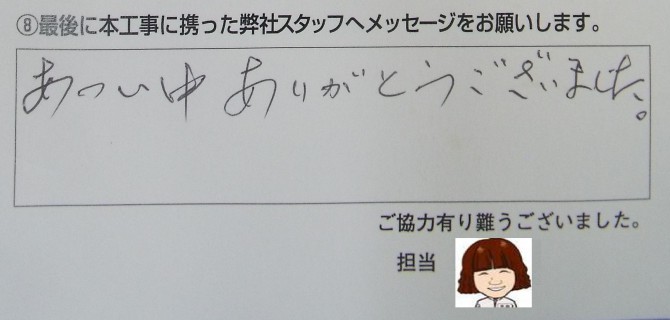 ⑧最後に本工事に携った弊社スタッフへメッセージをお願いします。
あつい中 ありがとうございました。
ご協力有り難うございました。
担当